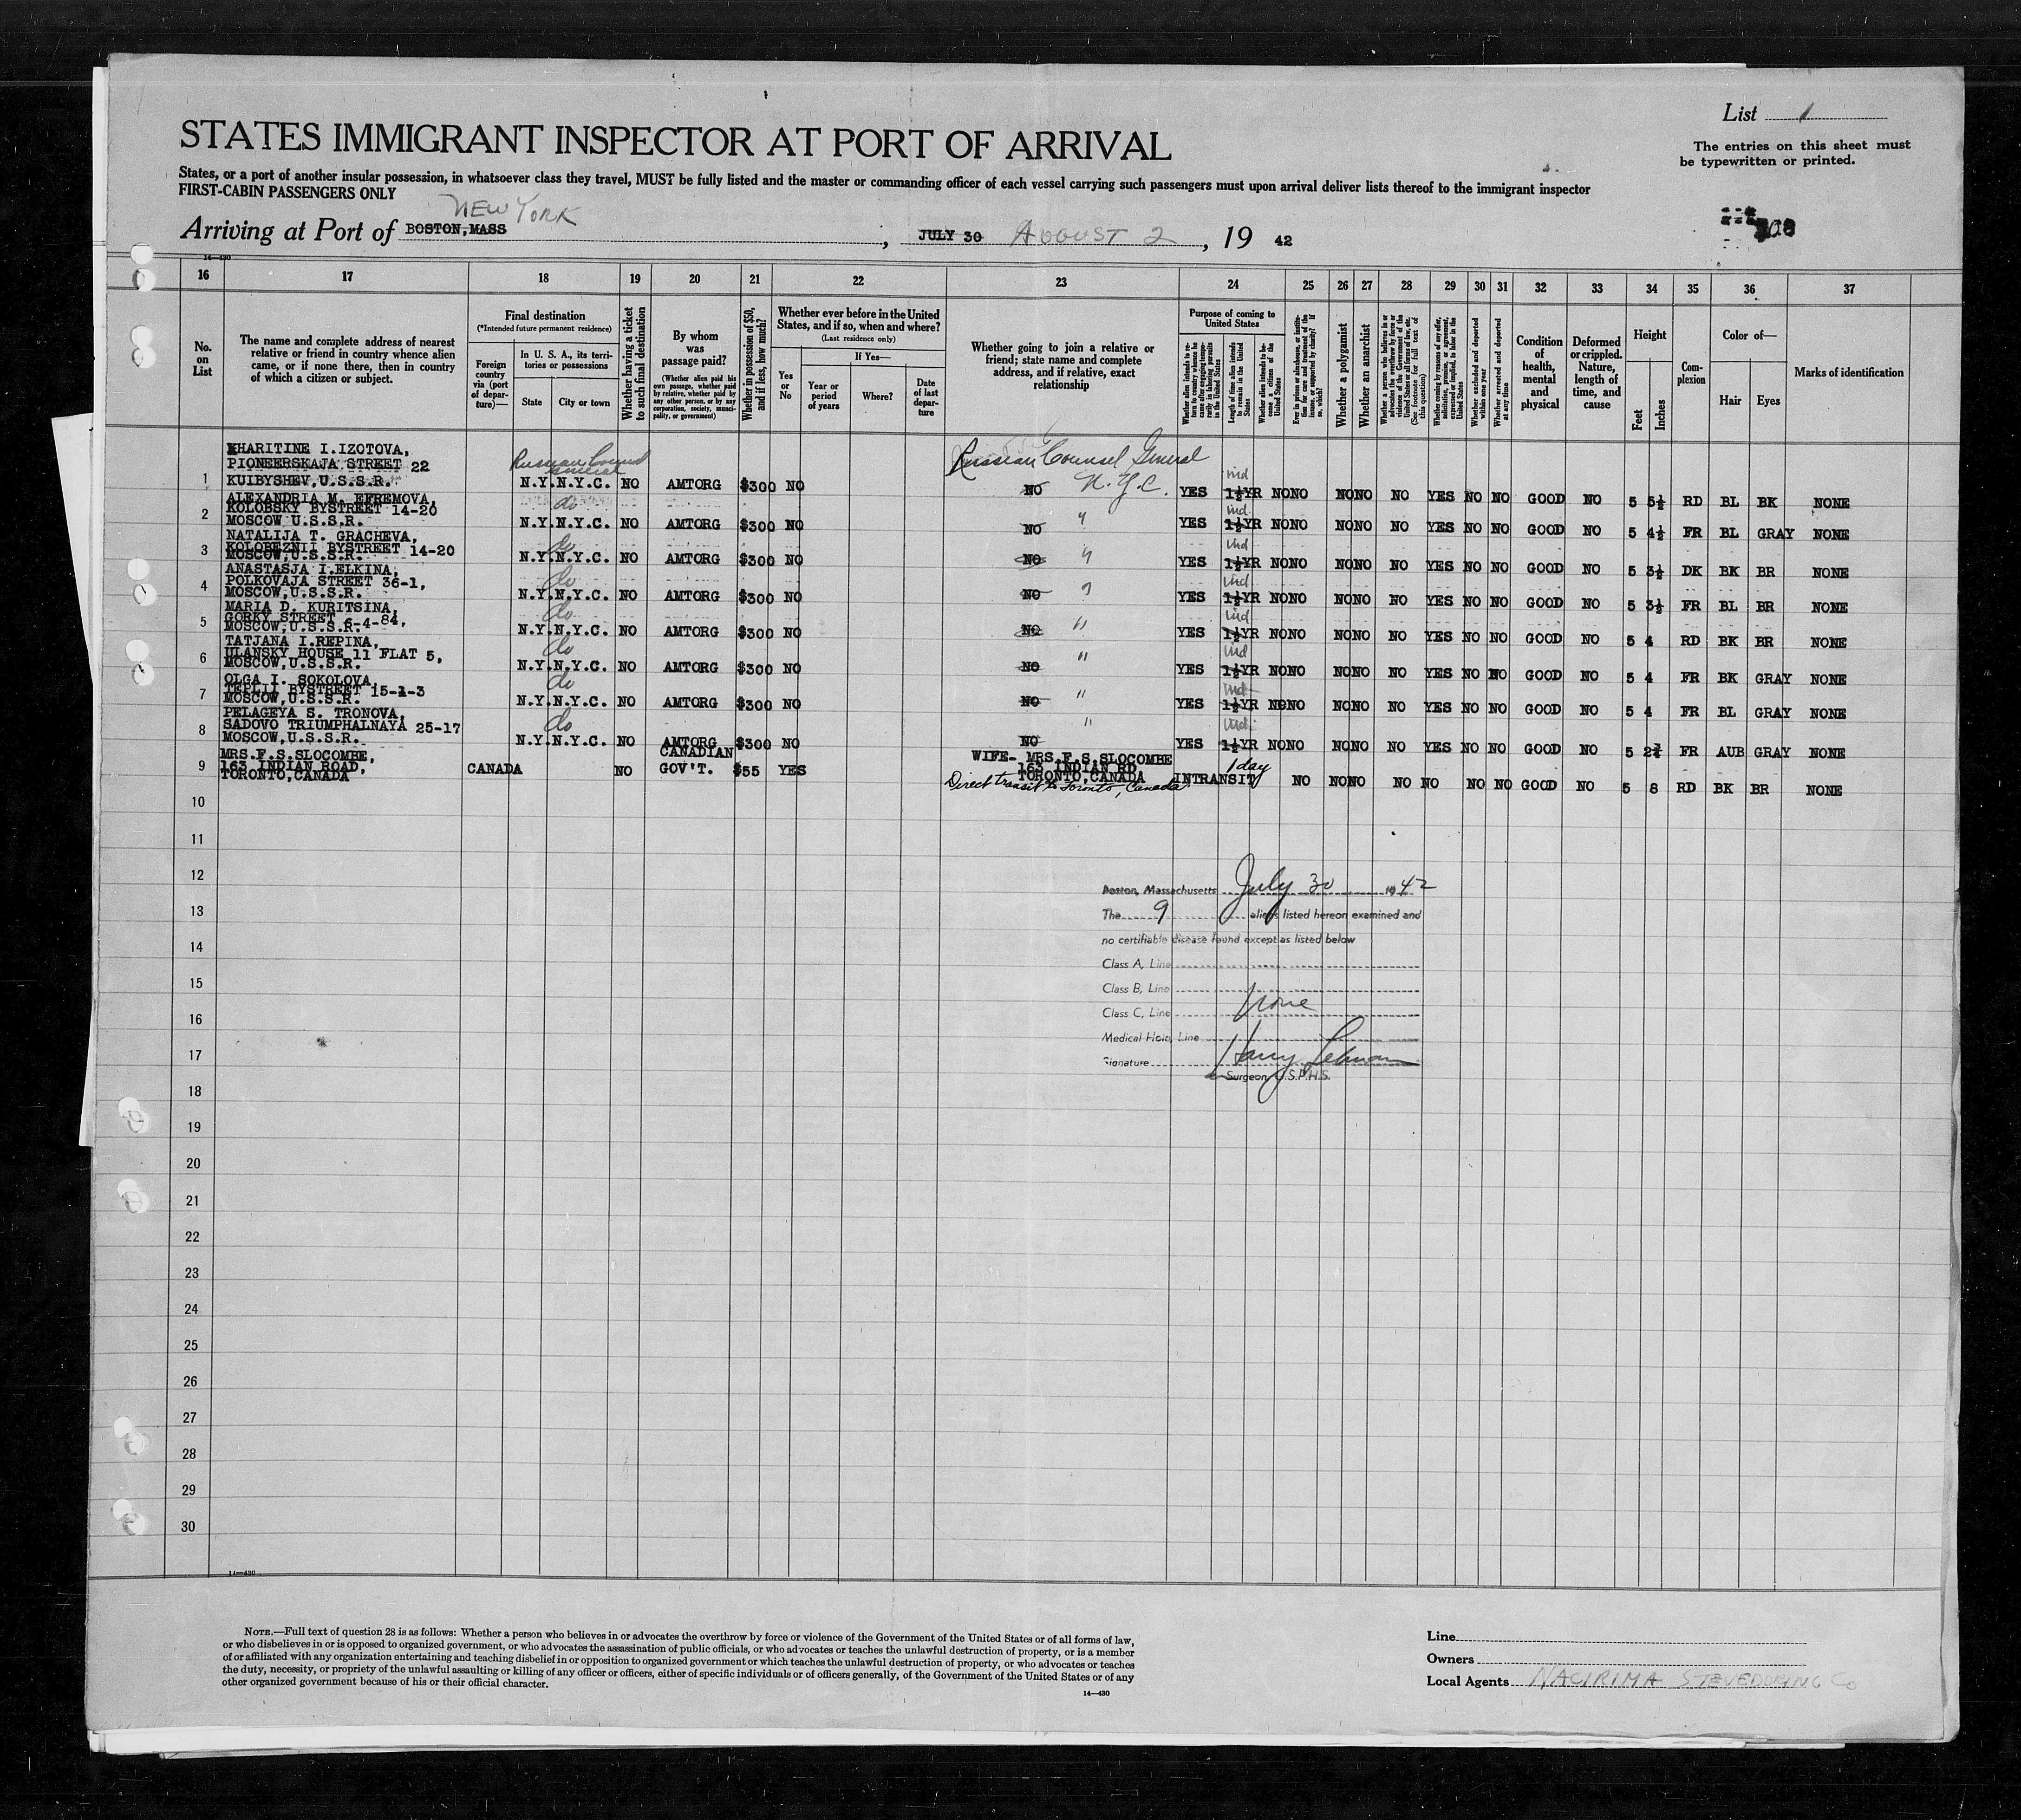 List 1
The entries on this sheet must
be typewritten or printed.
STATES IMMIGRANT INSPECTOR AT PORT OF ARRIVAL
States, or a port of another insular possession, in whatsoever class they travel, MUST be fully listed and the master or commanding officer of each vessel carrying such passengers must upon arrival deliver lists thereof to the immigrant inspector
FIRST-CABIN PASSENGERS ONLY
NEW YORK
Arriving at Port of BOSTON,MASS , JULY 30 AUGUST 2 , 19 42
14—430
16 17 18 19 20 21 22 23 24 25 26 27 28 29 30 31 32 33 34 35 36 37
No. on List
The name and complete address of nearest relative or friend in country whence alien came, or if none there, then in country of which a citizen or subject.
Final destination
(*Intended future permanent residence)
Foreign country via (port of departure)—
In U. S. A., its territories or possessions
State City or town
Whether having a ticket to such final destination
By whom was passage paid?
(Whether alien paid his own passage, whether paid by relative, whether paid by any other person, or by any corporation, society, municipality, or government)
Whether in possession of $50, and if less, how much?
Whether ever before in the United States, and if so, when and where?
(Last residence only)
Yes or No
If Yes—
Year or period of years
Where?
Date of last departure
Whether going to join a relative or friend; state name and complete address, and if relative, exact relationship
Purpose of coming to United States
Length of time alien intends to remain in the United States
Whether alien intends to become a citizen of the United States
Whether a polygamist
Whether an anarchist
Whether excluded and deported within one year
Whether arrested and deported at any time
Condition of health, mental and physical
Deformed or crippled. Nature, length of time, and cause
Height
Feet Inches
Complexion
Color of—
Hair Eyes
Marks of identification
Russian Counsel General
N.Y.C.
1 KHARITINE I.IZOTOVA,
PIONEERSKAJA STREET 22
KUIBYSHEV,U.S.S.R. N.Y. N.Y.C. NO AMTORG $300 NO NO YES 1½YR NO NO NO NO NO YES NO NO GOOD NO 5 5½ RD BL BK NONE
2 ALEXANDRIA M. EFREMOVA,
KOLOBSKY BYSTREET 14-20
MOSCOW U.S.S.R. do N.Y. N.Y.C. NO AMTORG $300 NO NO " YES ind 1½YR NO NO NO NO NO YES NO NO GOOD NO 5 4½ FR BL GRAY NONE
3 NATALIJA T. GRACHEVA,
KOLOBEZNII BYSTREET 14-20
MOSCOW,U.S.S.R. do N.Y. N.Y.C. NO AMTORG $300 NO NO " YES ind 1½YR NO NO NO NO NO YES NO NO GOOD NO 5 3½ DK BK BR NONE
4 ANASTASJA I.ELKINA,
POLKOVAJA STREET 36-1,
MOSCOW,U.S.S.R. do N.Y. N.Y.C. NO AMTORG $300 NO NO " YES ind 1½YR NO NO NO NO NO YES NO NO GOOD NO 5 3½ FR BL BR NONE
5 MARIA D. KURITSINA,
GORKY STREET 6-4-84,
MOSCOW,U.S.S.R. do N.Y. N.Y.C. NO AMTORG $300 NO NO " YES ind 1½YR NO NO NO NO NO YES NO NO GOOD NO 5 4 RD BK BR NONE
6 TATJANA I.REPINA,
ULANSKY HOUSE 11 FLAT 5,
MOSCOW,U.S.S.R. do N.Y. N.Y.C. NO AMTORG $300 NO NO " YES ind 1½YR NO NO NO NO NO YES NO NO GOOD NO 5 4 FR BK GRAY NONE
7 OLGA I. SOKOLOVA
TEPLII BYSTREET 15-1-3
MOSCOW,U.S.S.R. do N.Y. N.Y.C. NO AMTORG $300 NO NO " YES ind 1½YR NO NO NO NO NO YES NO NO GOOD NO 5 4 FR BL GRAY NONE
8 PELAGEYA S. TRONOVA,
SADOVO TRIUMPHALNAYA 25-17
MOSCOW,U.S.S.R. do N.Y. N.Y.C. NO AMTORG $300 NO NO " YES ind 1½YR NO NO NO NO NO YES NO NO GOOD NO 5 2¾ FR AUB GRAY NONE
9 MRS.F.S.SLOCOMBE,
163 INDIAN ROAD,
TORONTO,CANADA CANADA NO CANADIAN GOV'T. $55 YES WIFE- MRS.F.S.SLOCOMBE
163 INDIAN RD
TORONTO,CANADA 1 day INTRANSIT NO NO NO NO NO NO NO GOOD NO 5 8 RD BK BR NONE
Direct transit to Toronto, Canada
10
11
12
13
14
15
16
17
18
19
20
21
22
23
24
25
26
27
28
29
30
Boston, Massachusetts July 30 1942
The 9 aliens listed hereon examined and
no certifiable disease found except as listed below
Class A, Line
Class B, Line
Class C, Line None
Medical Hold, Line
Signature Harry Lehman
Surgeon U.S.P.H.S.
14—430
NOTE.—Full text of question 28 is as follows: Whether a person who believes in or advocates the overthrow by force or violence of the Government of the United States or of all forms of law,
or who disbelieves in or is opposed to organized government, or who advocates the assassination of public officials, or who advocates or teaches the unlawful destruction of property, or is a member
of or affiliated with any organization entertaining and teaching disbelief in or opposition to organized government or which teaches the unlawful destruction of property, or who advocates or teaches
the duty, necessity, or propriety of the unlawful assaulting or killing of any officer or officers, either of specific individuals or of officers generally, of the Government of the United States or of any
other organized government because of his or their official character.
14—430
Line
Owners
Local Agents NACIRIMA STEVEDORING Co